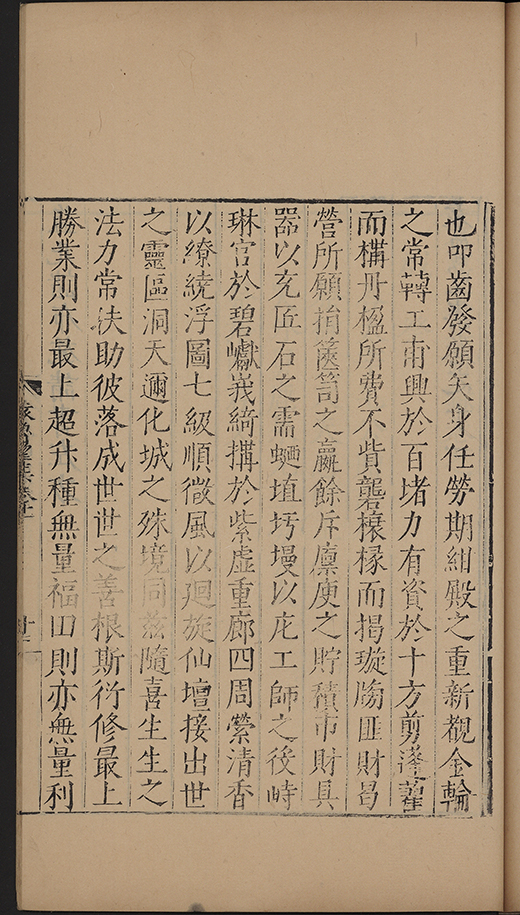 也叩齒發願矢身任勞期紺殿之重新覩金輪
之常轉工甫興於百堵力有資於十方剪蓬藋
而構丹楹所費不貲礱榱椽而揭璇牓匪財曷
營所願捐篋笥之羸餘斥廩庾之貯積市財具
器以充匠石之需埴圬墁以庀工師之役峙
琳宮於碧巘峩綺搆於紫虛重廊四周縈清香
以繚繞浮圖七級順微風以廻旋仙壇接出世
之靈區洞天邇化城之殊境同兹隨喜生生之
法力常扶助彼落成世世之善根斯衍修最上
勝業則亦最上超升種無量福田則亦無量利